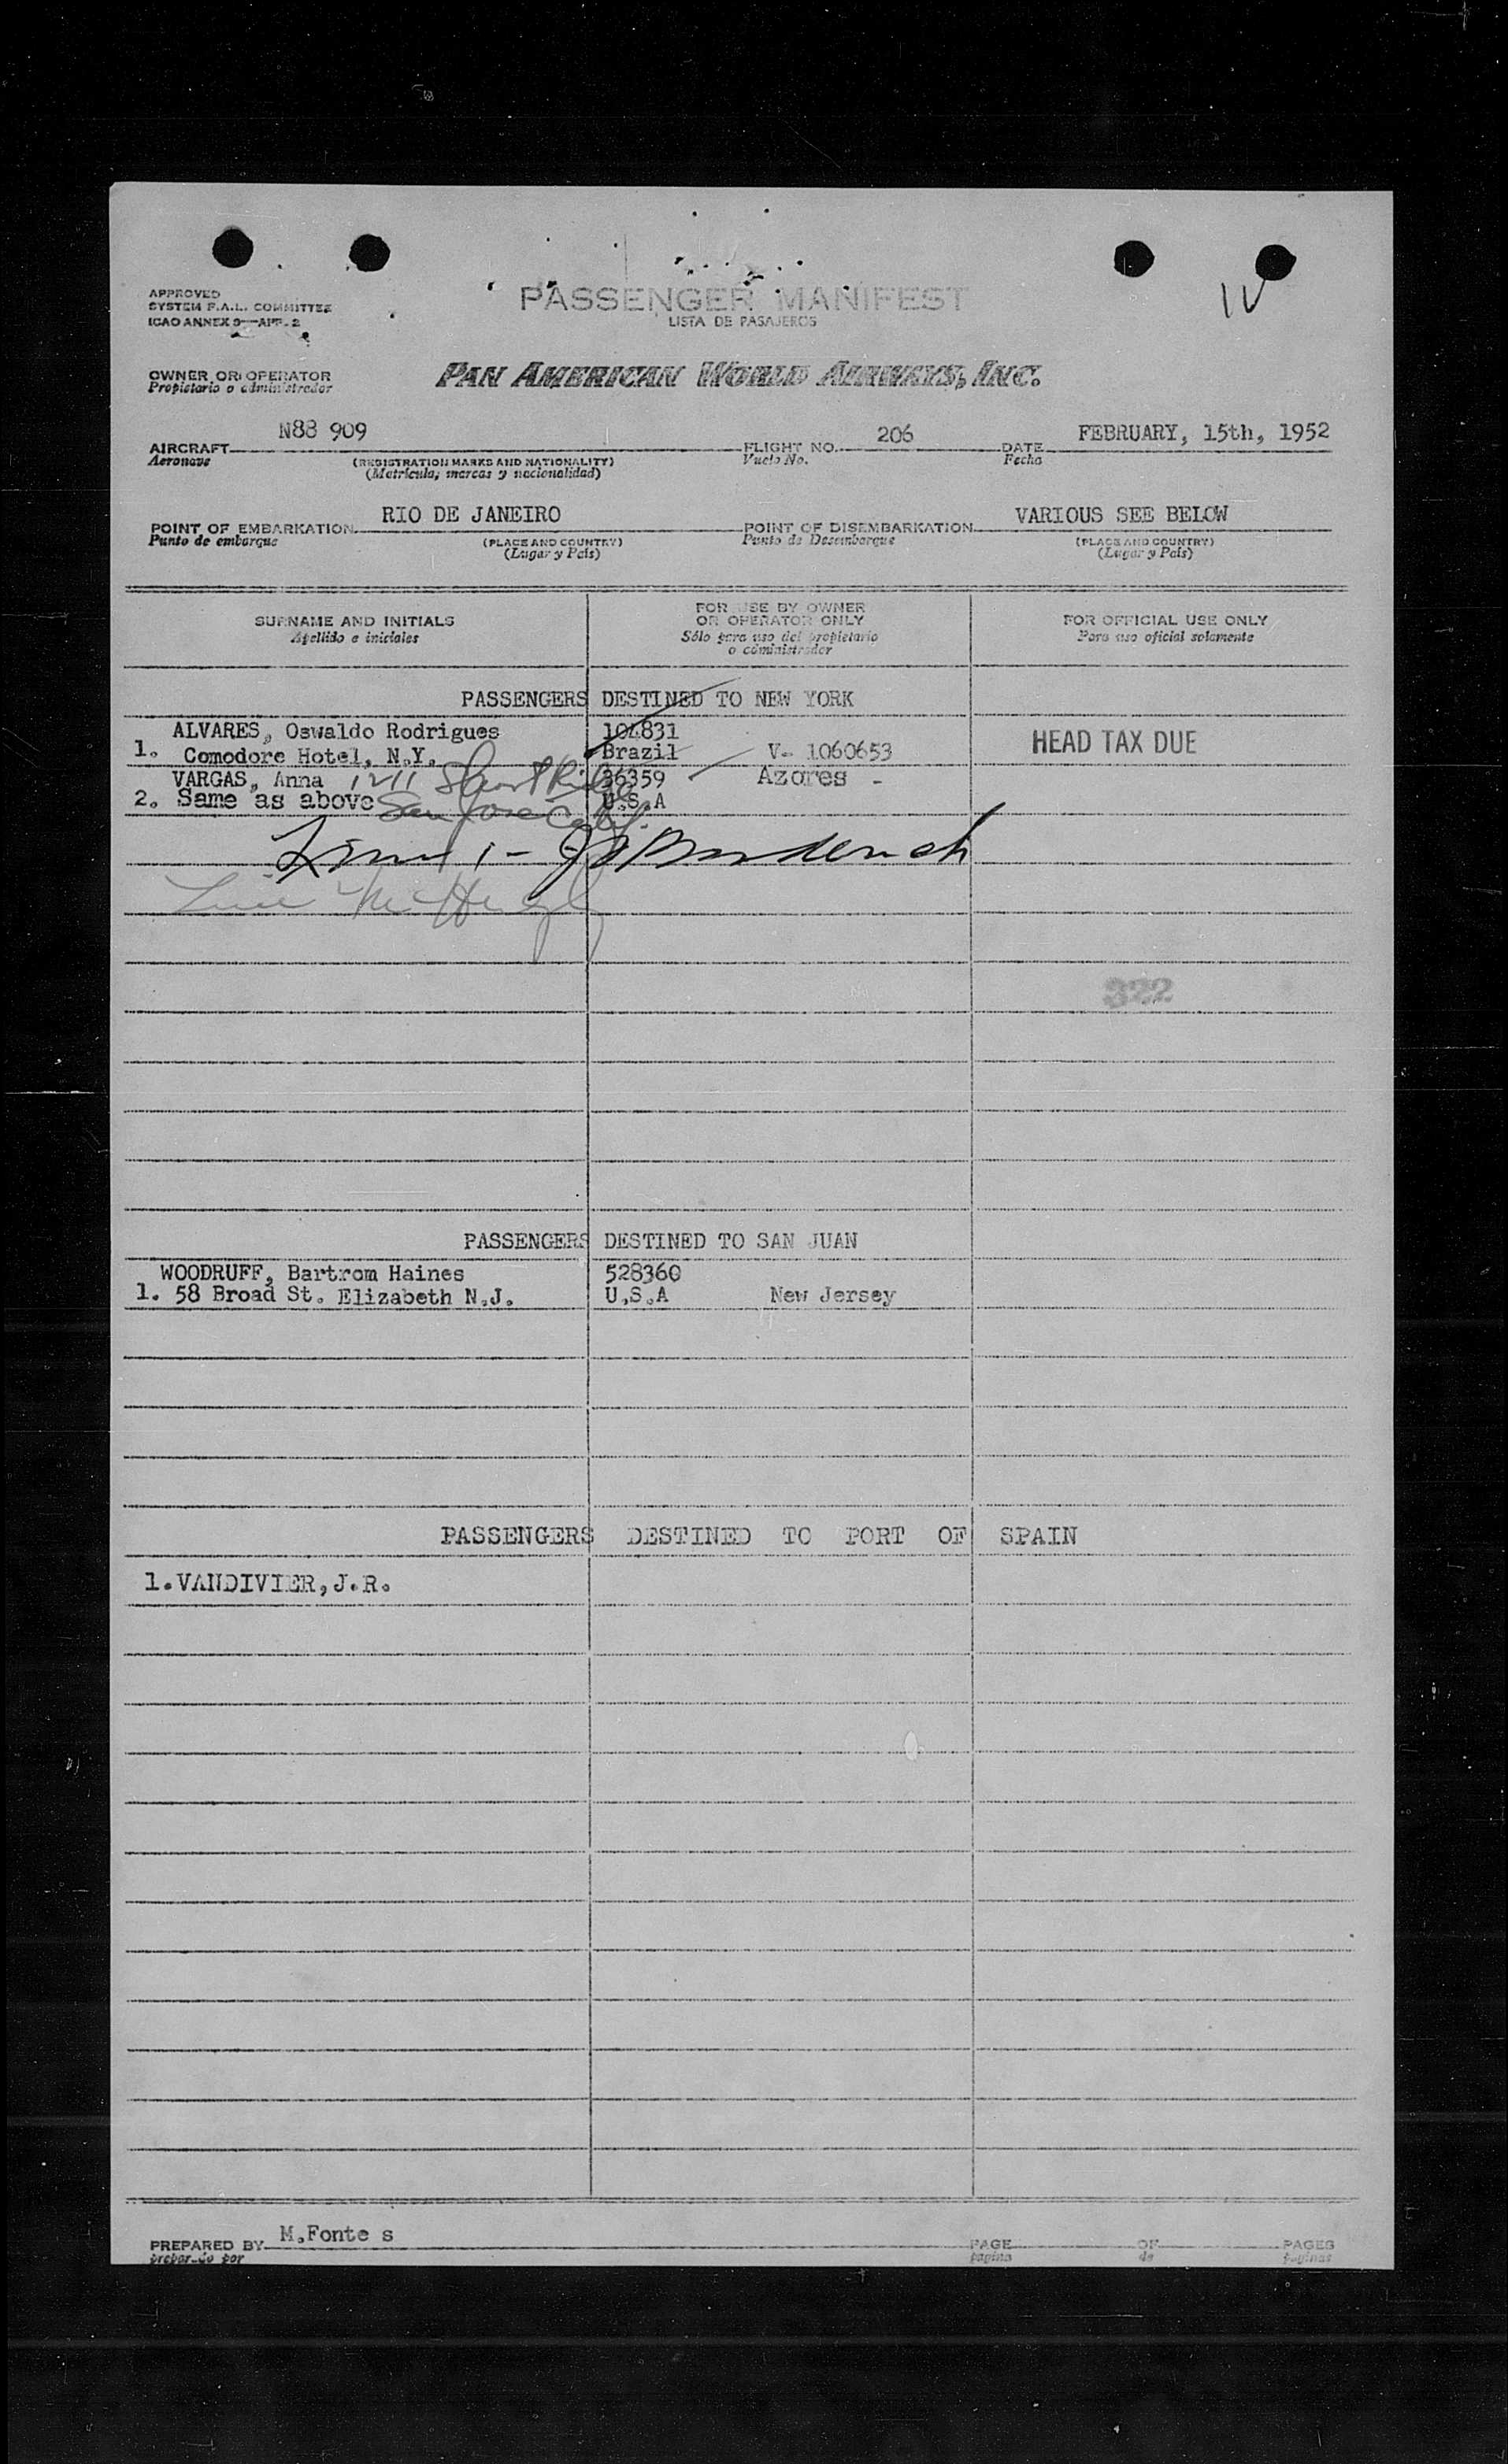 APPROVED
SYSTEM F.A.L. COMMITTEE
ICAO ANNEX 9—APP. 2
PASSENGER MANIFEST
LISTA DE PASAJEROS
OWNER OR OPERATOR
Propietario o administrador
PAN AMERICAN WORLD AIRWAYS, INC.
AIRCRAFT N88 909 FLIGHT NO. 206 DATE FEBRUARY, 15th, 1952
Aeronave (REGISTRATION MARKS AND NATIONALITY) Vuelo No. Fecha
(Matrícula, marcas y nacionalidad)
POINT OF EMBARKATION RIO DE JANEIRO POINT OF DISEMBARKATION VARIOUS SEE BELOW
Punto de embarque (PLACE AND COUNTRY) Punto de Desembarque (PLACE AND COUNTRY)
(Lugar y País) (Lugar y País)
SURNAME AND INITIALS
Apellido e iniciales
FOR USE BY OWNER
OR OPERATOR ONLY
Sólo para uso del propietario
o administrador
FOR OFFICIAL USE ONLY
Para uso oficial solamente
PASSENGERS DESTINED TO NEW YORK
ALVARES, Oswaldo Rodrigues 104831
1. Comodore Hotel, N.Y. Brazil V- 1060653 HEAD TAX DUE
VARGAS, Anna 1211 36359 Azores -
2. Same as above San Jose Calif. U.S.A
322
PASSENGERS DESTINED TO SAN JUAN
WOODRUFF, Bartrom Haines 528360
1. 58 Broad St. Elizabeth N.J. U.S.A New Jersey
PASSENGERS DESTINED TO PORT OF SPAIN
1.VANDIVIER,J.R.
PREPARED BY M.Fonte s PAGE OF PAGES
preparado por página de páginas